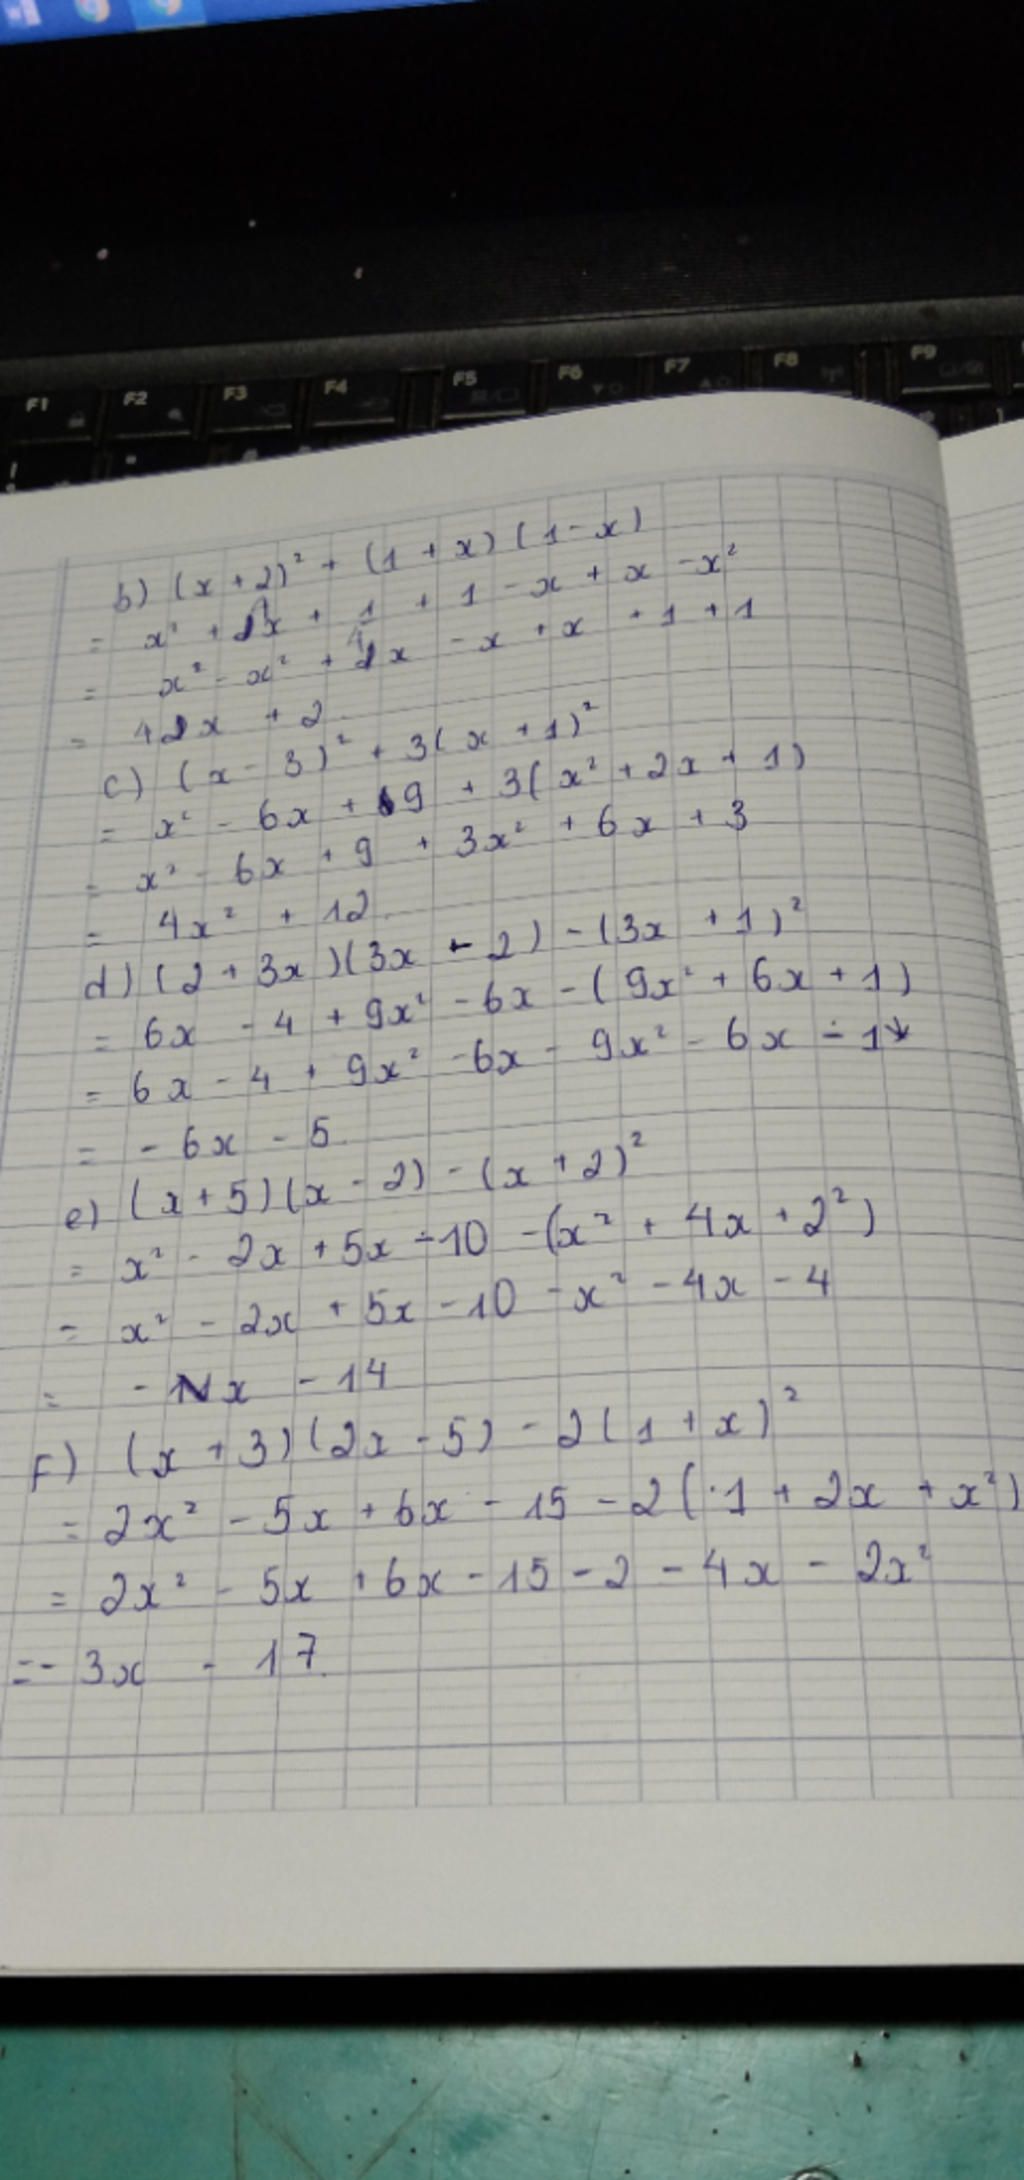 F1 F2 F3 F4 F5 F6 F7 F8 F9
b) (x + 2)² + (1 + x) (1 - x)
= x² + 4x + 4 + 1 - x + x - x²
= x² - x² + 4x - x + x + 1 + 1
= 4x + 2
c) (x - 3)² + 3(x + 1)²
= x² - 6x + 9 + 3(x² + 2x + 1)
= x² - 6x + 9 + 3x² + 6x + 3
= 4x² + 12.
d) (2 + 3x)(3x - 2) - (3x + 1)²
= 6x - 4 + 9x² - 6x - (9x² + 6x + 1)
= 6x - 4 + 9x² - 6x - 9x² - 6x - 1
= - 6x - 5.
e) (x + 5)(x - 2) - (x + 2)²
= x² - 2x + 5x - 10 - (x² + 4x + 2²)
= x² - 2x + 5x - 10 - x² - 4x - 4
= - x - 14
F) (x + 3)(2x - 5) - 2(1 + x)²
= 2x² - 5x + 6x - 15 - 2(1 + 2x + x²)
= 2x² - 5x + 6x - 15 - 2 - 4x - 2x²
= - 3x - 17.